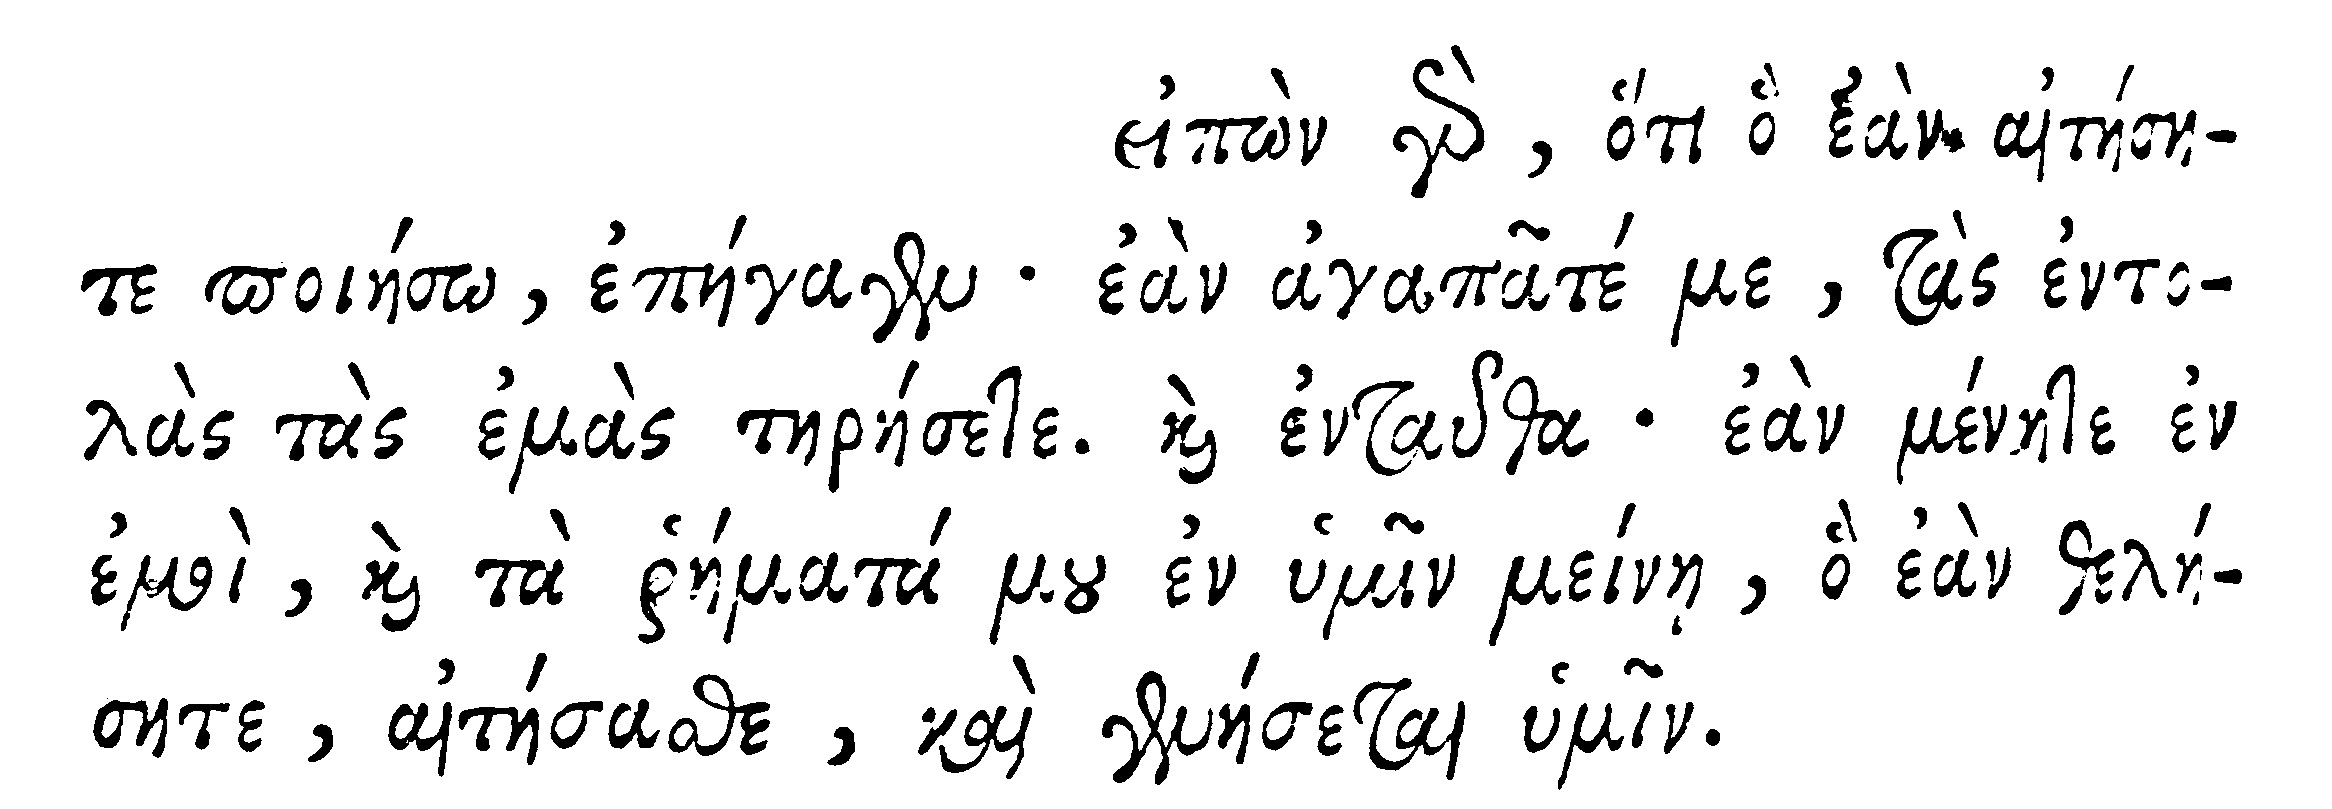 εἰπὼν γὰρ, ὅτι ὃ ἐὰν αἰτήση-
τε ποιήσω, ἐπήγαγεν· ἐὰν ἀγαπᾶτέ με, τὰς ἐντο-
λὰς τὰς ἐμὰς τηρήσετε. καὶ ἐνταῦθα· ἐὰν μένητε ἐν
ἐμοὶ, καὶ τὰ ῥήματά μου ἐν ὑμῖν μείνῃ, ὃ ἐὰν θελή-
σητε, αἰτήσασθε, καὶ γενήσεται ὑμῖν.